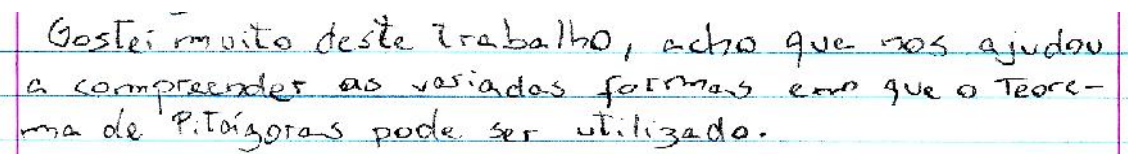 Gostei muito deste trabalho, acho que nos ajudou
a compreender as variadas formas em que o Teore-
ma de Pitágoras pode ser utilizado.